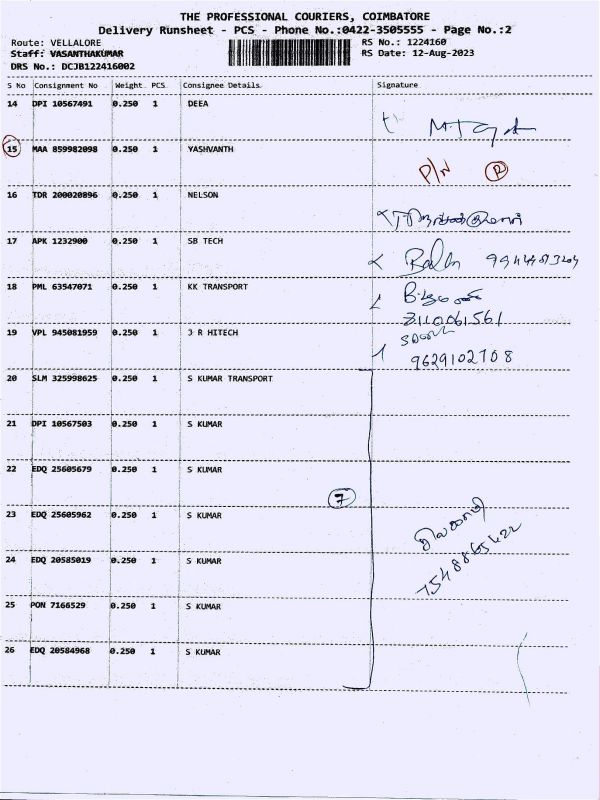 THE PROFESSIONAL COURIERS, COIMBATORE
Delivery Runsheet - PCS - Phone No.:0422-3505555 - Page No.:2
Route: VELLALORE RS No.: 1224160
Staff: VASANTHAKUMAR RS Date: 12-Aug-2023
DRS No.: DCJB122416002
S No Consignment No Weight PCS Consignee Details Signature
14 DPI 10567491 0.250 1 DEEA
15 MAA 859982098 0.250 1 YASHVANTH P/N R
16 TDR 200020896 0.250 1 NELSON
17 APK 1232900 0.250 1 SB TECH
18 PML 63547071 0.250 1 KK TRANSPORT
3110061561
19 VPL 945081959 0.250 1 J R HITECH
9629102708
20 SLM 325998625 0.250 1 S KUMAR TRANSPORT
21 DPI 10567503 0.250 1 S KUMAR
22 EDQ 25605679 0.250 1 S KUMAR
7
23 EDQ 25605962 0.250 1 S KUMAR
24 EDQ 20585019 0.250 1 S KUMAR
7548865422
25 PON 7166529 0.250 1 S KUMAR
26 EDQ 20584968 0.250 1 S KUMAR